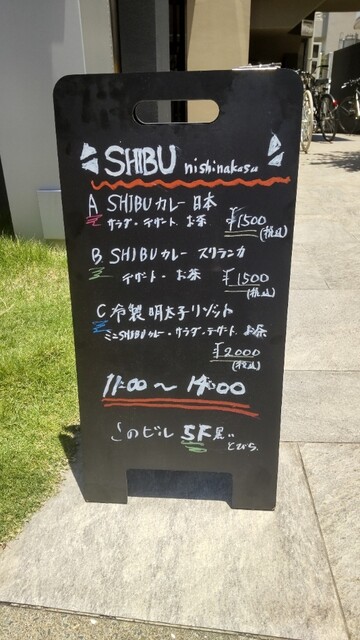 SHIBU nishinakasu
A SHIBUカレー 日本
サラダ・デザート お茶 ¥1500
(税込)
B SHIBUカレー スリランカ
デザート・お茶 ¥1500
(税込)
C 冷製 明太子リゾット
ミニSHIBUカレー・サラダ・デザート お茶
¥2000
(税込)
11:00 〜 14:00
このビル 5F
とびら.